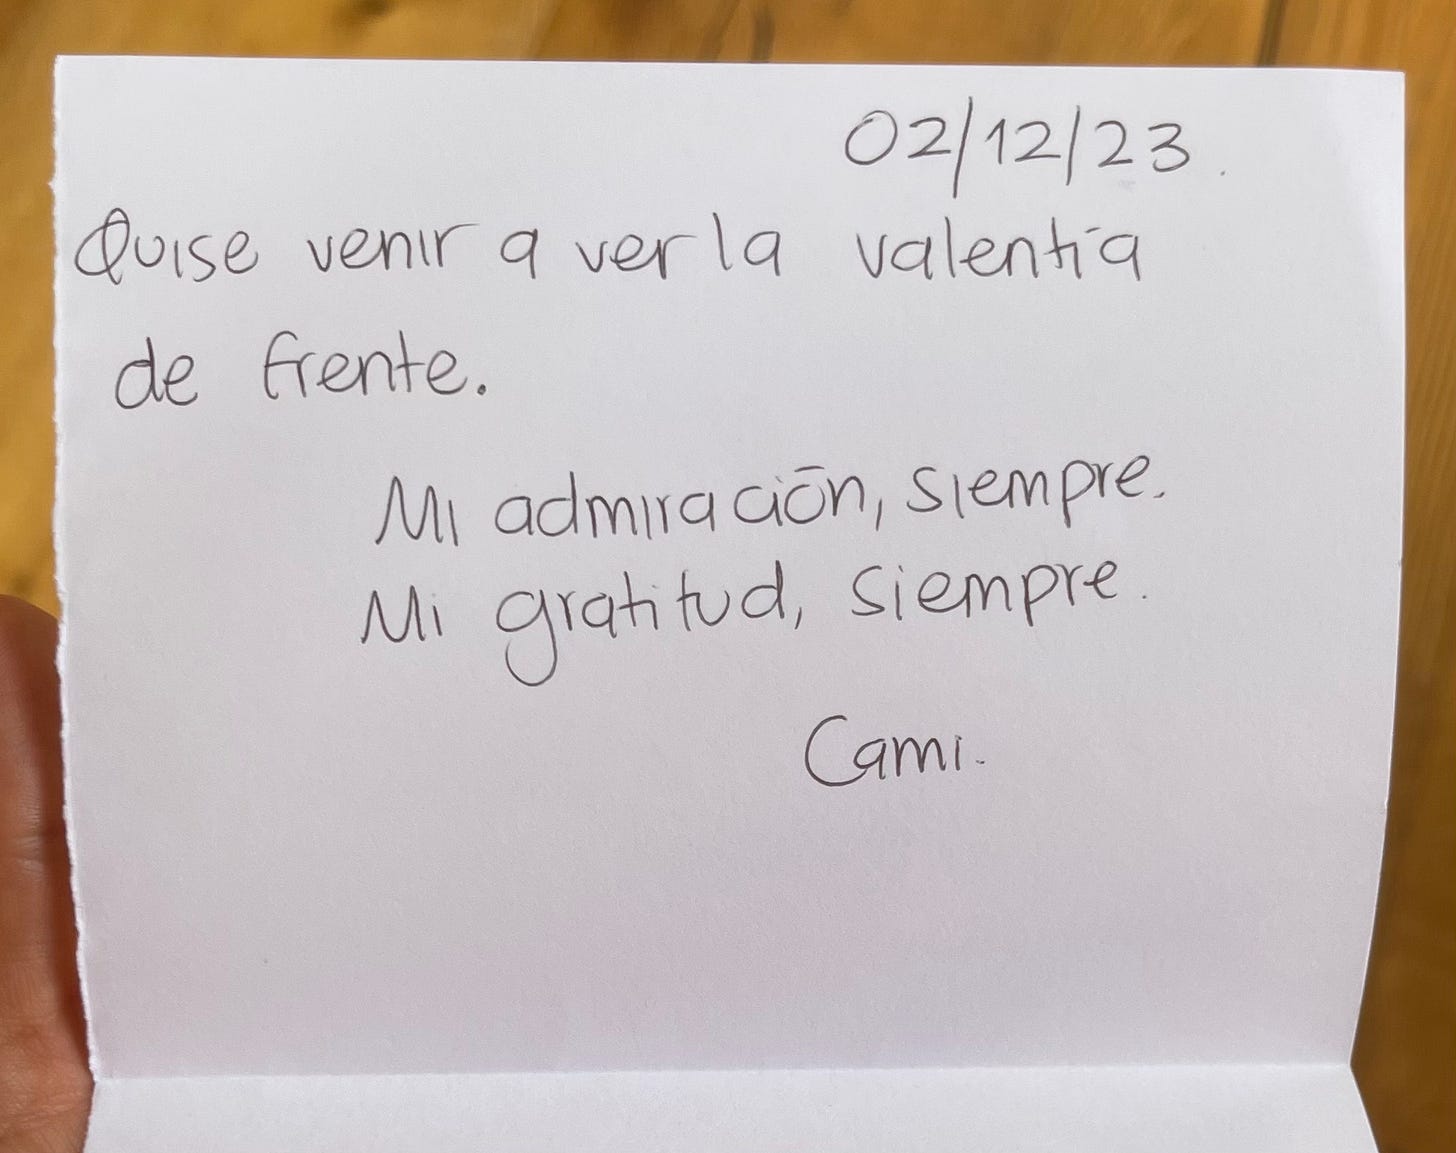 02/12/23.
Quise venir a ver la valentía
de frente.
Mi admiración, siempre.
Mi gratitud, siempre.
Cami.